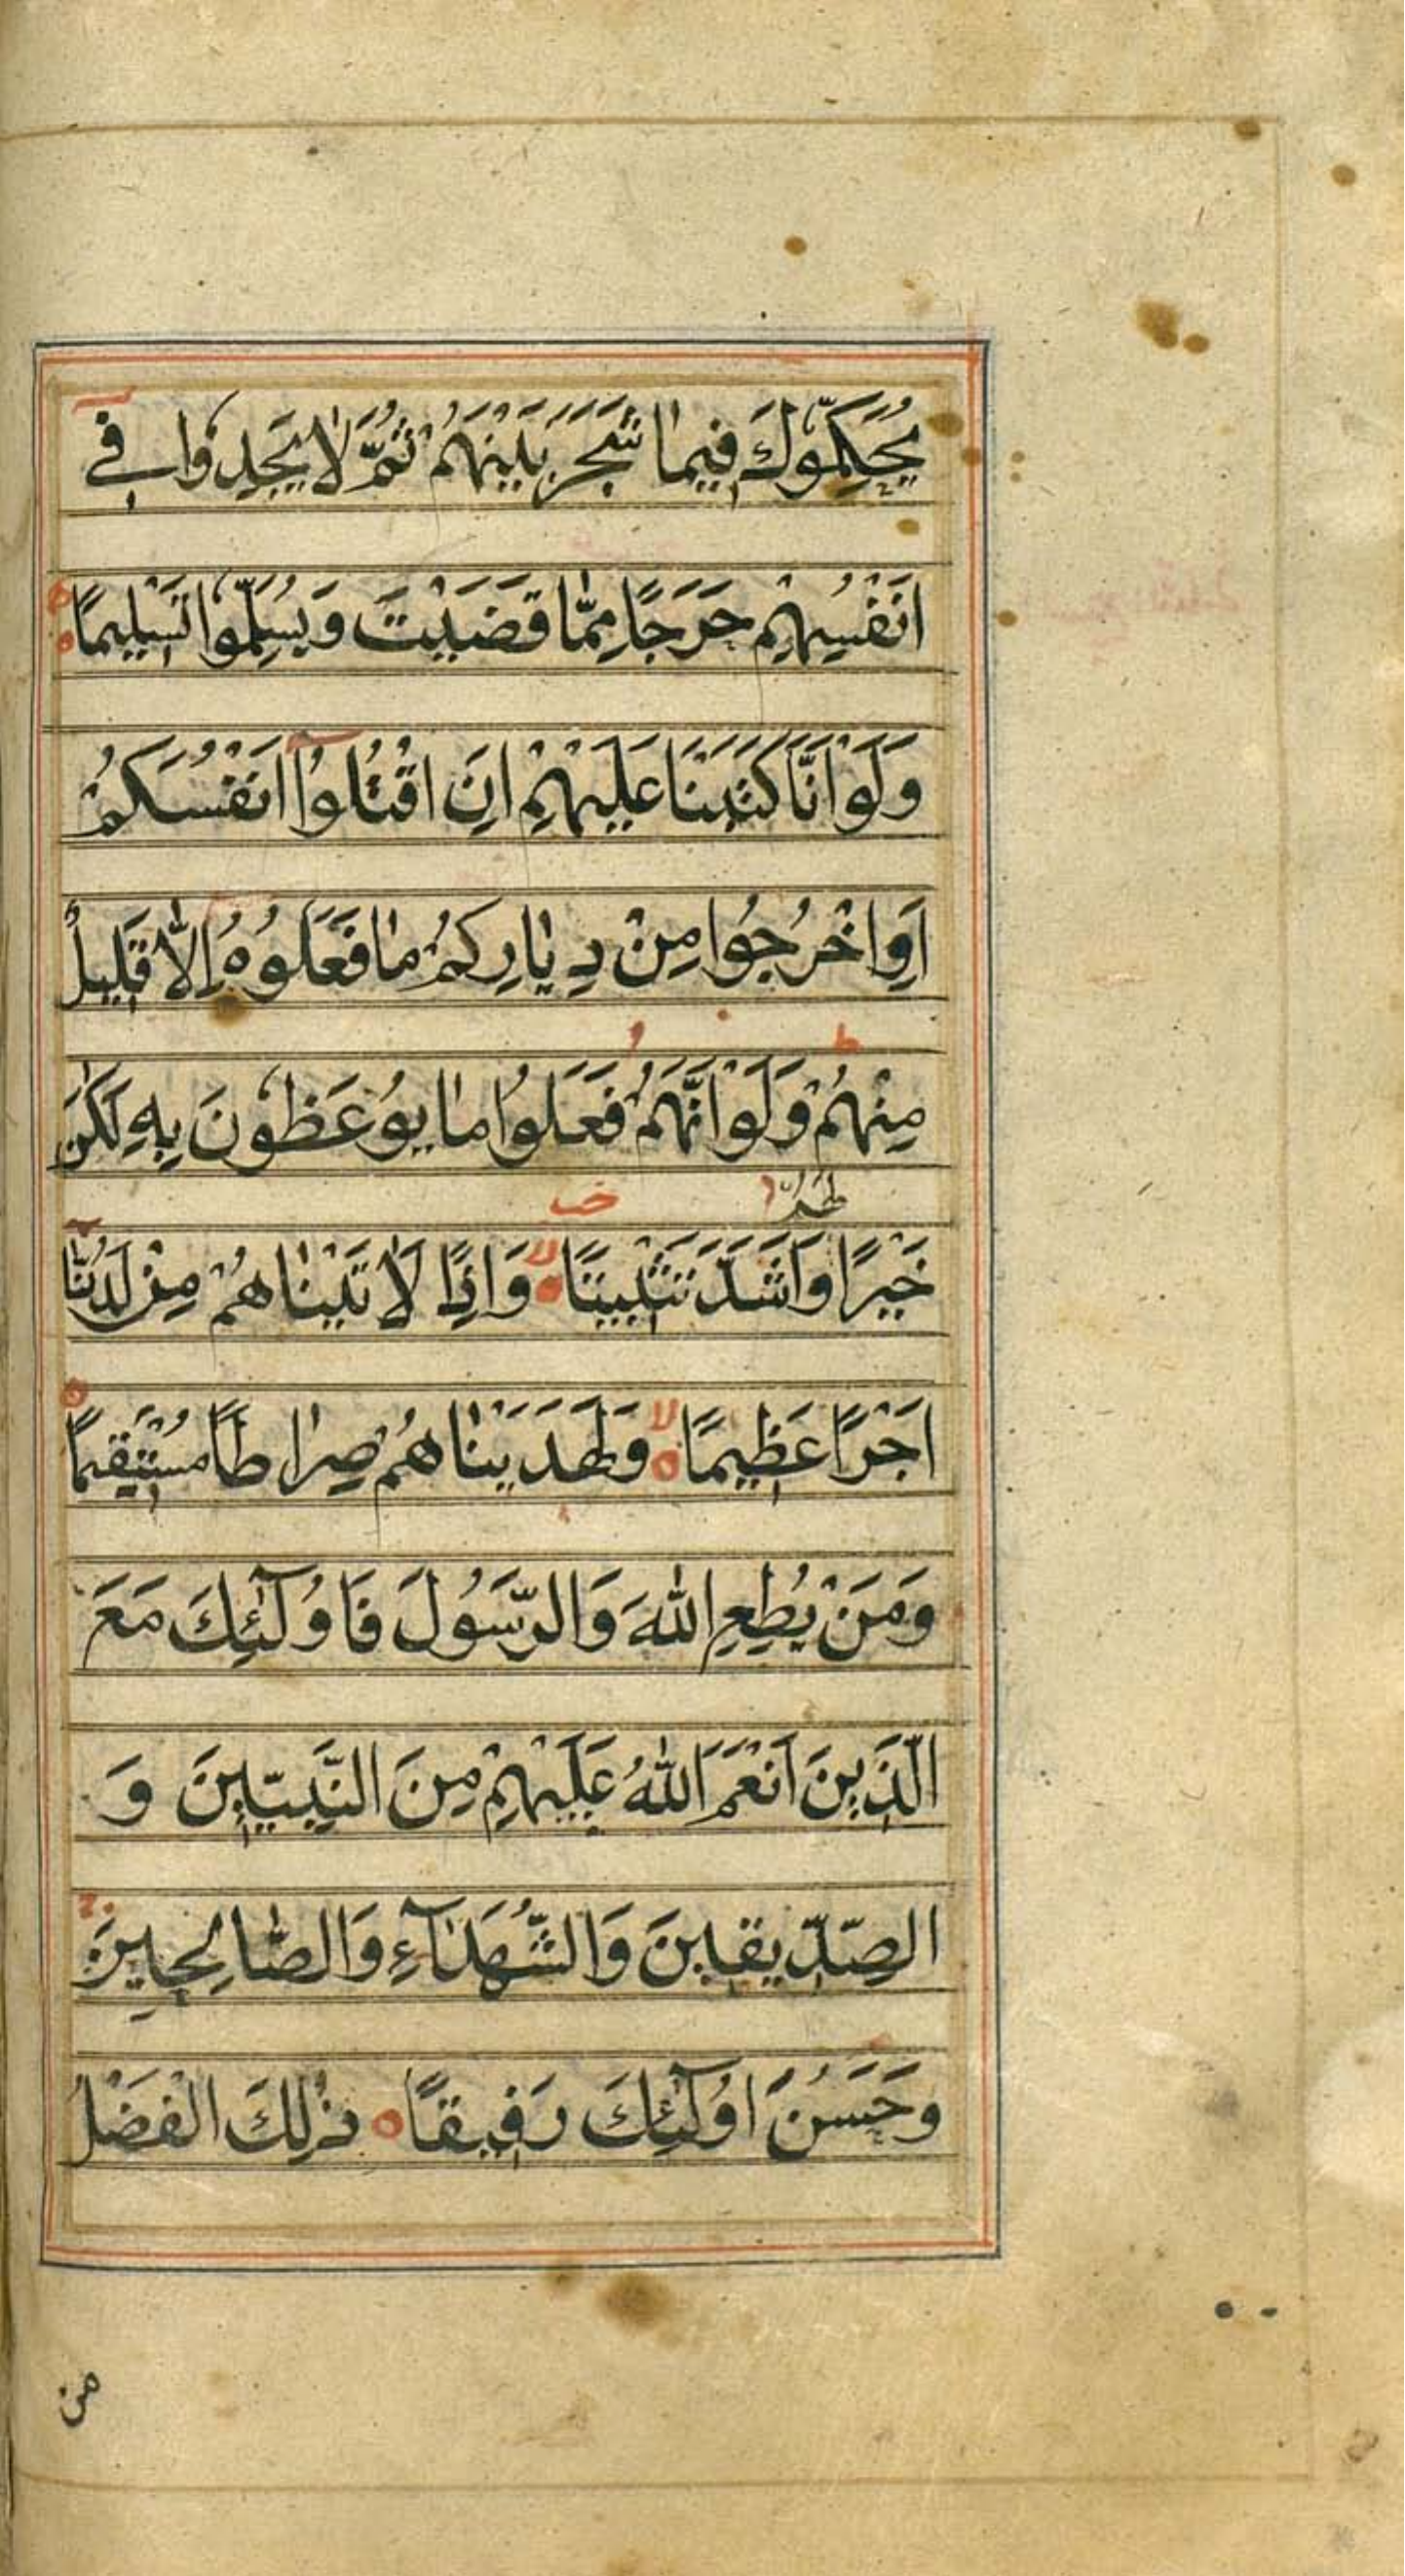 يُحَكِّمُوكَ فِيمَا شَجَرَ بَيْنَهُمْ ثُمَّ لَا يَجِدُوا فِي
اَنْفُسِهِمْ حَرَجًا مِمَّا قَضَيْتَ وَيُسَلِّمُوا تَسْلِيمًا ط
وَلَوْ اَنَّا كَتَبْنَا عَلَيْهِمْ اَنِ اقْتُلُوٓا اَنْفُسَكُمْ
اَوِ اخْرُجُوا مِنْ دِيَارِكُمْ مَا فَعَلُوهُ اِلَّا قَلِيلٌ
مِنْهُمْ ط وَلَوْ اَنَّهُمْ فَعَلُوا مَا يُوعَظُونَ بِهِ لَكَانَ
خَيْرًا لَهُمْ وَاَشَدَّ تَثْبِيتًا لا وَاِذًا لَاٰتَيْنَاهُمْ مِنْ لَدُنَّٓا
اَجْرًا عَظِيمًا لا وَلَهَدَيْنَاهُمْ صِرَاطًا مُسْتَقِيمًا
وَمَنْ يُطِعِ اللّٰهَ وَالرَّسُولَ فَاُولٰٓئِكَ مَعَ
الَّذِينَ اَنْعَمَ اللّٰهُ عَلَيْهِمْ مِنَ النَّبِيِّينَ وَ
الصِّدِّيقِينَ وَالشُّهَدَآءِ وَالصَّالِحِينَ
وَحَسُنَ اُولٰٓئِكَ رَفِيقًا ذٰلِكَ الْفَضْلُ
من